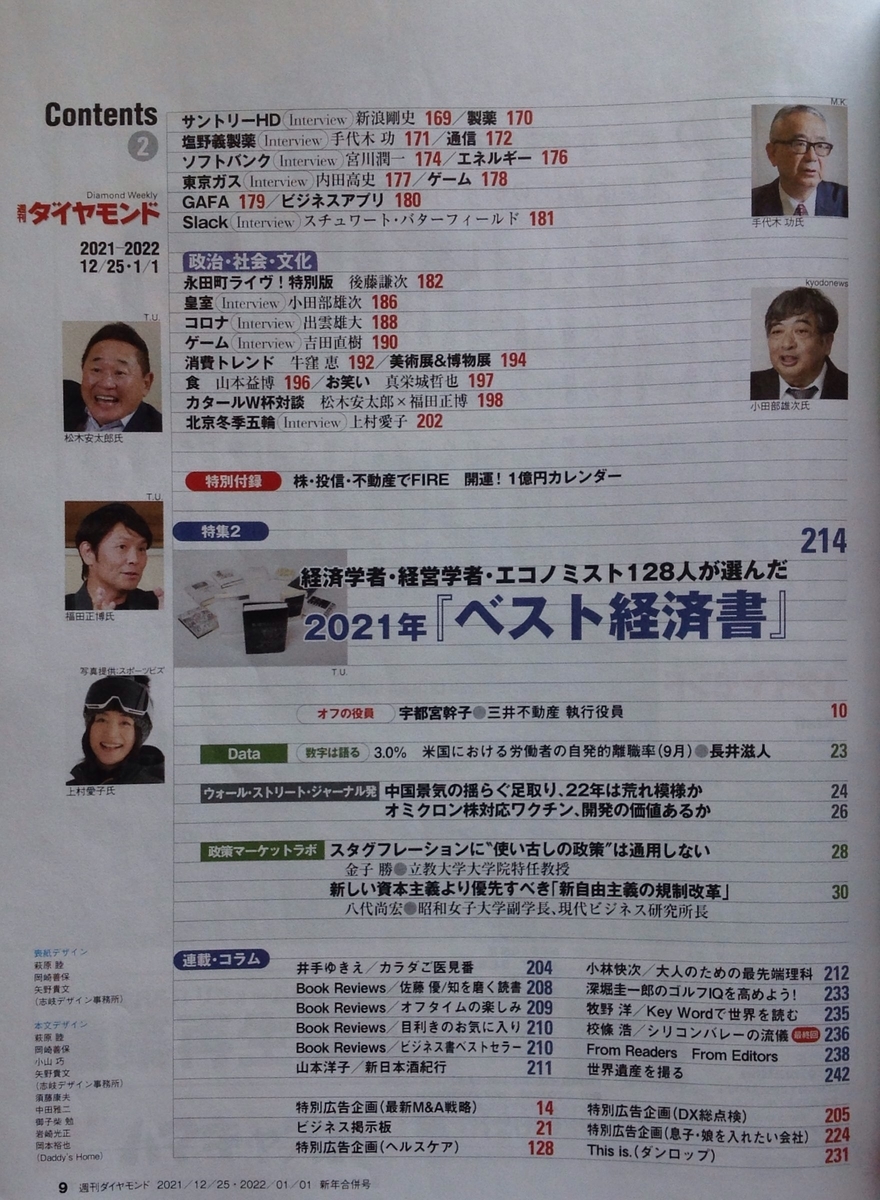 Contents
2
Diamond Weekly
週刊ダイヤモンド
2021-2022
12/25・1/1
サントリーHD (Interview) 新浪剛史 169／製薬 170
塩野義製薬 (Interview) 手代木 功 171／通信 172
ソフトバンク (Interview) 宮川潤一 174／エネルギー 176
東京ガス (Interview) 内田高史 177／ゲーム 178
GAFA 179／ビジネスアプリ 180
Slack (Interview) スチュワート・バターフィールド 181
M.K.
手代木 功氏
政治・社会・文化
永田町ライヴ！特別版 後藤謙次 182
皇室 (Interview) 小田部雄次 186
コロナ (Interview) 出雲雄大 188
ゲーム (Interview) 吉田直樹 190
消費トレンド 牛窪 恵 192／美術展&博物展 194
食 山本益博 196／お笑い 真栄城哲也 197
カタールW杯対談 松木安太郎×福田正博 198
北京冬季五輪 (Interview) 上村愛子 202
kyodonews
小田部雄次氏
T.U.
松木安太郎氏
T.U.
福田正博氏
写真提供:スポーツビズ
上村愛子氏
特別付録 株・投信・不動産でFIRE 開運！1億円カレンダー
特集2
214
経済学者・経営学者・エコノミスト128人が選んだ
2021年『ベスト経済書』
T.U.
オフの役員 宇都宮幹子●三井不動産 執行役員 10
Data 数字は語る 3.0% 米国における労働者の自発的離職率(9月)●長井滋人 23
ウォール・ストリート・ジャーナル発 中国景気の揺らぐ足取り、22年は荒れ模様か 24
オミクロン株対応ワクチン、開発の価値あるか 26
政策マーケットラボ スタグフレーションに“使い古しの政策”は通用しない 28
金子 勝●立教大学大学院特任教授
新しい資本主義より優先すべき「新自由主義の規制改革」 30
八代尚宏●昭和女子大学副学長、現代ビジネス研究所長
連載・コラム
井手ゆきえ／カラダご医見番 204
Book Reviews／佐藤 優/知を磨く読書 208
Book Reviews／オフタイムの楽しみ 209
Book Reviews／目利きのお気に入り 210
Book Reviews／ビジネス書ベストセラー 210
山本洋子／新日本酒紀行 211
小林快次／大人のための最先端理科 212
深堀圭一郎のゴルフIQを高めよう! 233
牧野 洋／Key Wordで世界を読む 235
校條 浩／シリコンバレーの流儀 最終回 236
From Readers From Editors 238
世界遺産を撮る 242
特別広告企画(最新M&A戦略) 14
ビジネス掲示板 21
特別広告企画(ヘルスケア) 128
特別広告企画(DX総点検) 205
特別広告企画(息子・娘を入れたい会社) 224
This is.(ダンロップ) 231
表紙デザイン
萩原 睦
岡崎善保
矢野貴文
(志岐デザイン事務所)
本文デザイン
萩原 睦
岡崎善保
小山 巧
矢野貴文
(志岐デザイン事務所)
須藤康夫
中田雅二
御子柴 勉
岩崎光正
岡本裕也
(Daddy's Home)
9 週刊ダイヤモンド 2021/12/25・2022/01/01 新年合併号